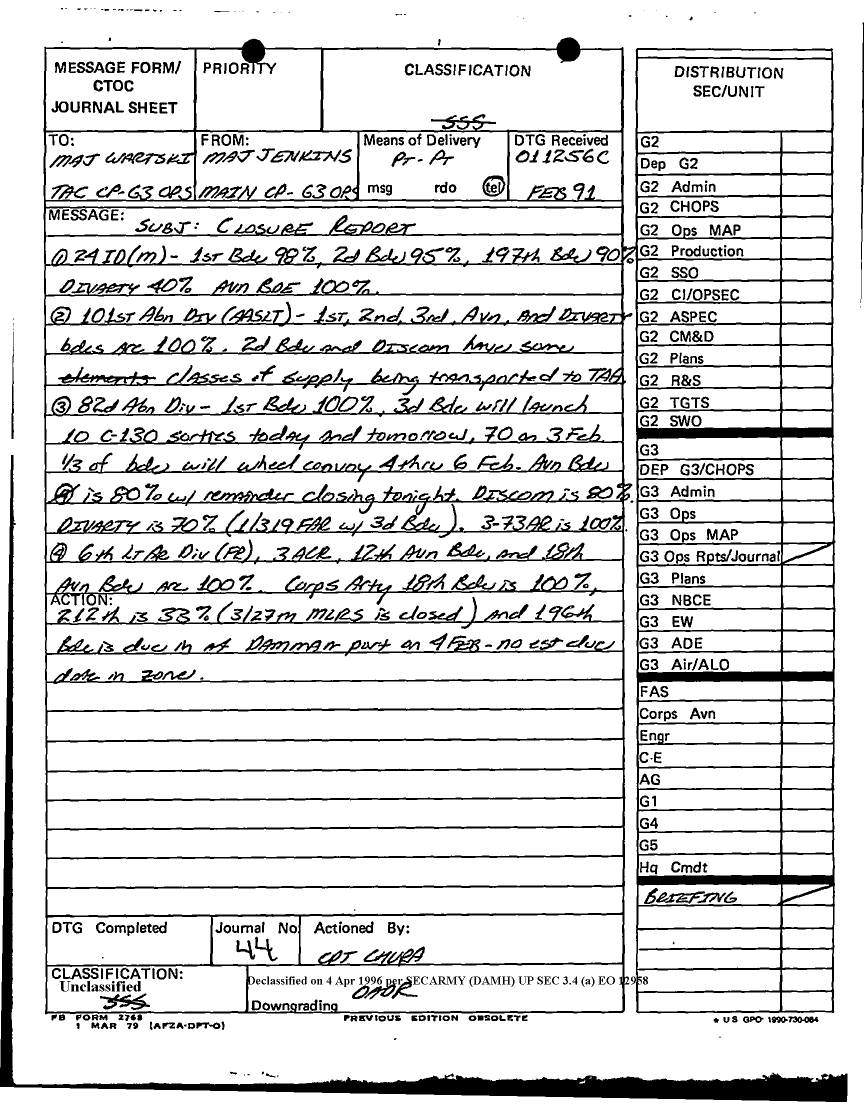 MESSAGE FORM/
CTOC
JOURNAL SHEET
PRIORITY
CLASSIFICATION
SSS
TO:
MAJ WARTSKI
TAC CP-G3 OPS
FROM:
MAJ JENKINS
MAIN CP-G3 OPS
Means of Delivery
PT-PT
msg rdo tel
DTG Received
011256C
FEB 91
MESSAGE:
SUBJ: CLOSURE REPORT
① 24 ID(M) - 1st Bde 98%, 2d Bde 95%, 197th Bde 90%
DIVARTY 40% AVN BDE 100%.
② 101st Abn Div (AASLT) - 1st, 2nd, 3rd, Avn, And DIVARTY
bdes are 100%. 2d Bde and DISCOM have some
elements classes of supply being transported to TAA
③ 82d Abn Div - 1st Bde 100%, 3d Bde will launch
10 C-130 sorties today and tomorrow, 70 on 3 Feb.
1/3 of bde will wheel convoy 4 thru 6 Feb. Avn Bde
④ is 80% w/ remainder closing tonight. DISCOM is 80%.
DIVARTY is 70% (1/319 FAR w/ 3d Bde). 3-73AR is 100%.
④ 6th Lt AR Div (FR), 3 ACR, 12th Avn Bde, and 18th
Avn Bde are 100%. Corps Arty 18th Bde is 100%,
ACTION:
212th is 33% (3/27m MLRS is closed) and 196th
Bde is due in at DAMMAN port on 4 FEB - no est due
date in zone.
DTG Completed
Journal No.
44
Actioned By:
CPT CHURA
CLASSIFICATION:
Unclassified
SSS
Declassified on 4 Apr 1996 per SECARMY (DAMH) UP SEC 3.4 (a) EO 12958
OADR
Downgrading
FB FORM 2768
1 MAR 79 (AFZA-DPT-O)
PREVIOUS EDITION OBSOLETE
DISTRIBUTION
SEC/UNIT
G2
Dep G2
G2 Admin
G2 CHOPS
G2 Ops MAP
G2 Production
G2 SSO
G2 CI/OPSEC
G2 ASPEC
G2 CM&D
G2 Plans
G2 R&S
G2 TGTS
G2 SWO
G3
DEP G3/CHOPS
G3 Admin
G3 Ops
G3 Ops MAP
G3 Ops Rpts/Journal
G3 Plans
G3 NBCE
G3 EW
G3 ADE
G3 Air/ALO
FAS
Corps Avn
Engr
C-E
AG
G1
G4
G5
Hq Cmdt
BRIEFING
* U S GPO 1990-730-084